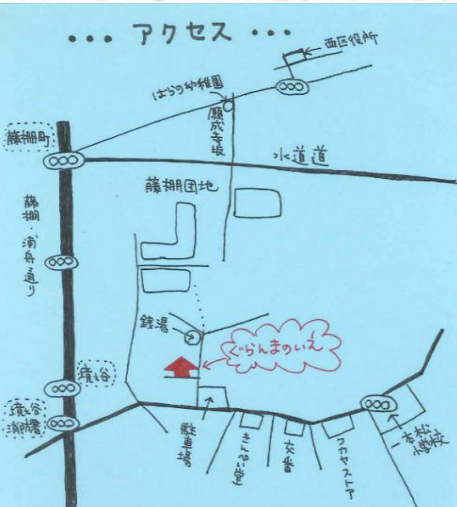 ••• アクセス •••
西区役所
はらの幼稚園
願成寺坂
藤棚町
水道道
藤棚団地
藤棚・浦舟通り
銭湯
ぐらんまのいえ
境谷
境谷
消防署
駐車場
きんぱい堂
交番
フカヤストア
一本松
小学校